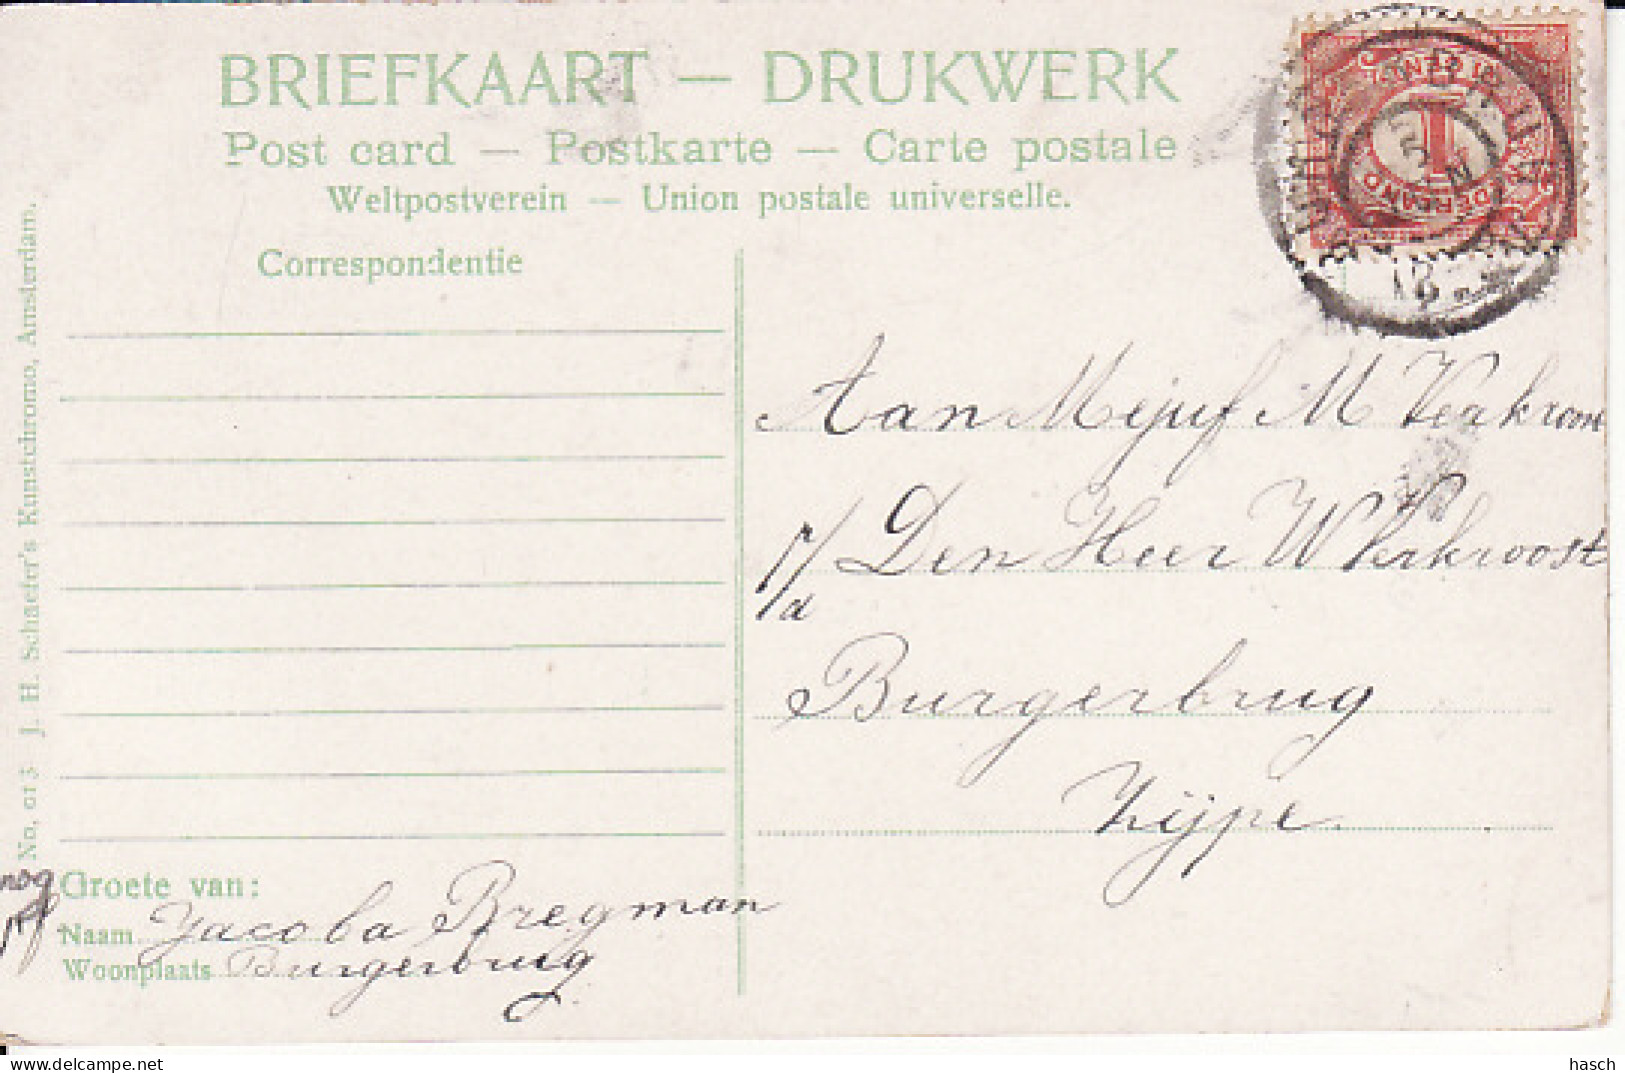 BRIEFKAART — DRUKWERK
Post card — Postkarte — Carte postale
Weltpostverein — Union postale universelle.
Correspondentie
No. 613 J. H. Schaefer's Kunstchromo, Amsterdam.
1
Aan Mejuf M Verkroos
p/a Den Heer W Verkroost
Burgerbrug
Zijpe.
Groete van:
Naam Jacoba Bregman
Woonplaats Burgerbrug
nog
hasch